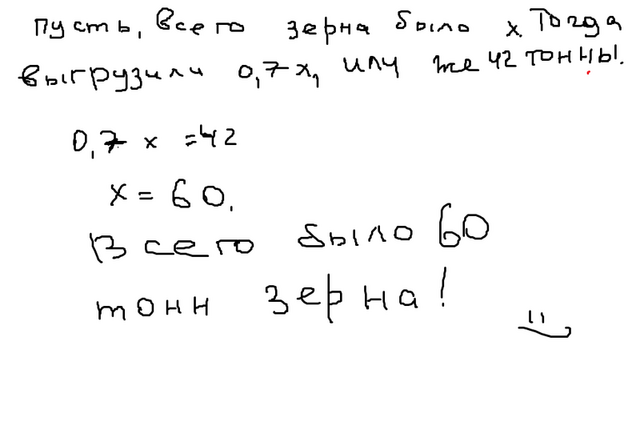 Пусть, всего зерна было x. Тогда
выгрузили 0,7x, или же 42 тонны.
0,7 x = 42
x = 60.
Всего было 60
тонн зерна!